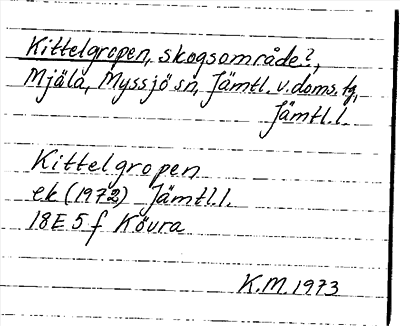 Kittelgropen, skogsområde?,
Mjälä, Myssjö sn, Jämtl. v. doms. tg,
Jämtl. l.
Kittelgropen
ek (1972) Jämtl. l.
18E 5 f Kövra
K.M. 1973